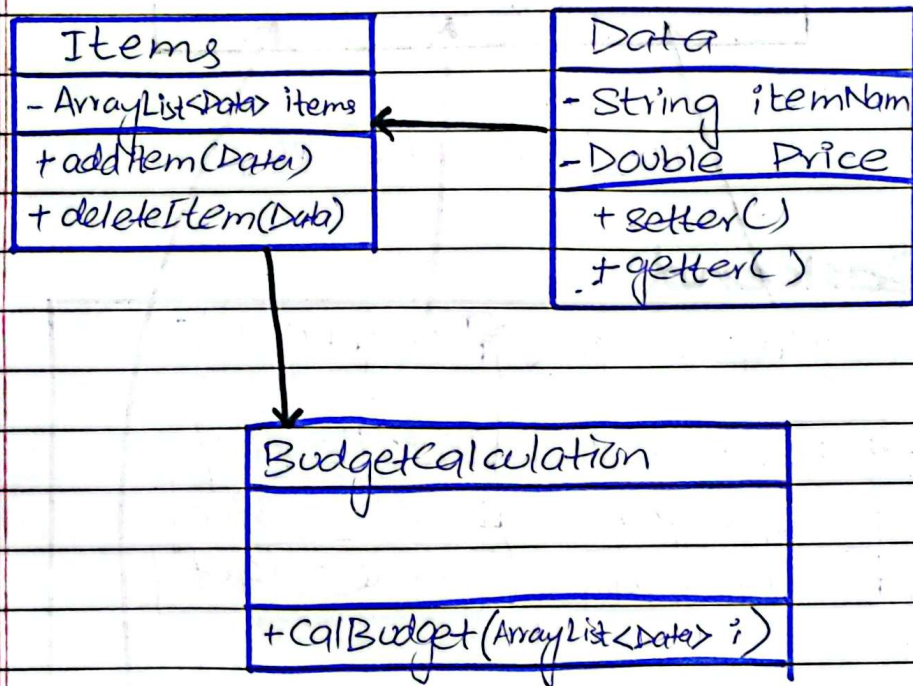 Items
- ArrayList<Data> items
+ addItem(Data)
+ deleteItem(Data)
Data
- String itemNam
- Double Price
+ setter()
+ getter()
BudgetCalculation
+ CalBudget(ArrayList<Data> i)